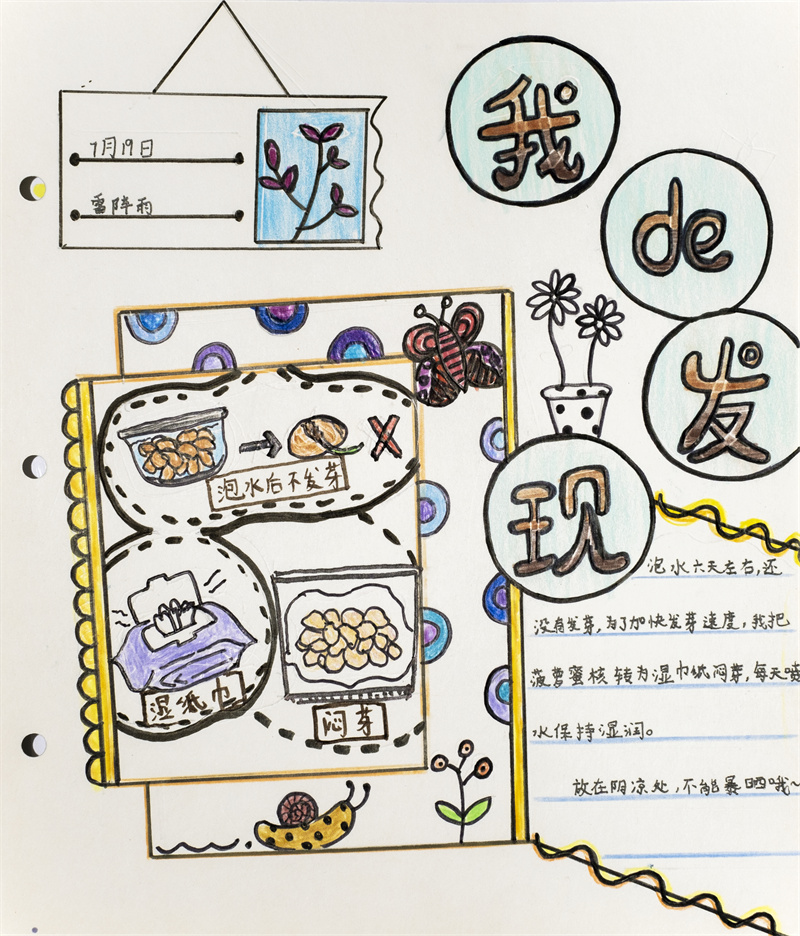 7月19日
雷阵雨
我
de
发
现
泡水后不发芽
湿纸巾
闷芽
泡水六天左右,还
没有发芽,为了加快发芽速度,我把
菠萝蜜核转为湿巾纸闷芽,每天喷
水保持湿润。
放在阴凉处,不能暴晒哦~